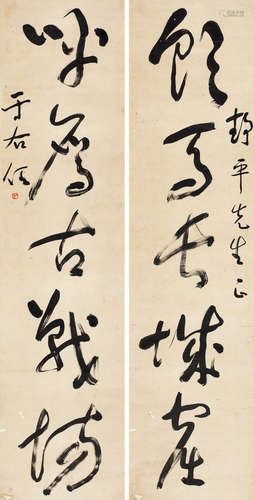 靜平先生正
飲馬長城窟
呼鷹古戰場
于右任